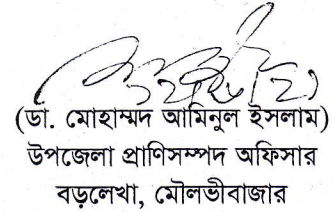 (ডা. মোহাম্মদ আমিনুল ইসলাম)
উপজেলা প্রাণিসম্পদ অফিসার
বড়লেখা, মৌলভীবাজার